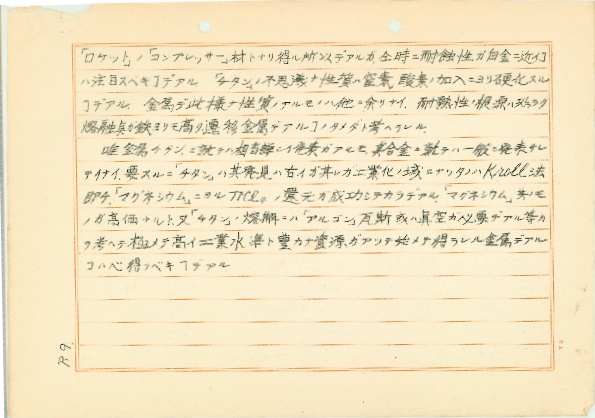 「ロケット」ノ「コンプレッサー」材トナリ得ル所以デアルガ、同時ニ耐蝕性ガ白金ニ近イヿ
ハ注目スベキヿデアル 「チタン」ノ不思議ナ性質ハ窒素、酸素ノ加入ニヨリ硬化スル
ヿデアル、金属デ此様ナ性質ノアルモノハ他ニ余リナイ、耐熱性ノ根源ハ恐ラク
熔融点ガ鉄ヨリモ高ク遷移金属デアルヿノタメダト考ヘラレル、
唯金属チタンニ就テハ相当詳シイ発表ガアルモ、其合金ニ就テハ一般ニ発表サレ
テイナイ、要スルニ「チタン」ハ其発見ハ古イガ其レガ工業化ノ域ニナッタノハKroll法
即チ、「マグネシウム」ニヨルTiCl₄ノ還元ガ成功シテカラデアル、「マグネシウム」ソノモ
ノガ高価ナルト、又「チタン」ノ熔解ニハ「アルゴン」瓦斯或ハ真空ガ必要デアル等カ
ラ考ヘテ極メテ高イ工業水準ト豊カナ資源ガアッテ始メテ得ラレル金属デアル
ヿハ心得ツベキヿデアル
P.9.